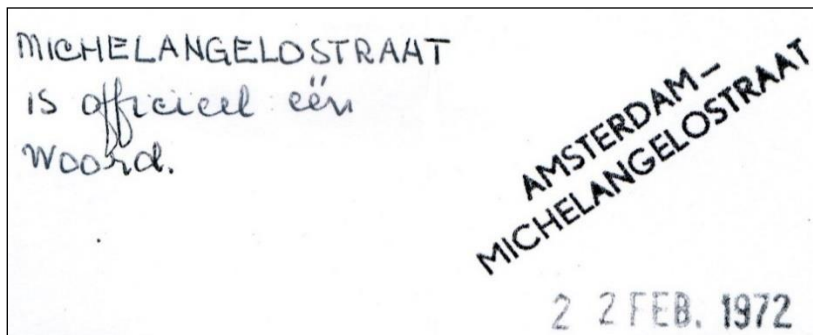 MICHELANGELOSTRAAT
is officieel één
woord.
AMSTERDAM–
MICHELANGELOSTRAAT
2 2 FEB. 1972